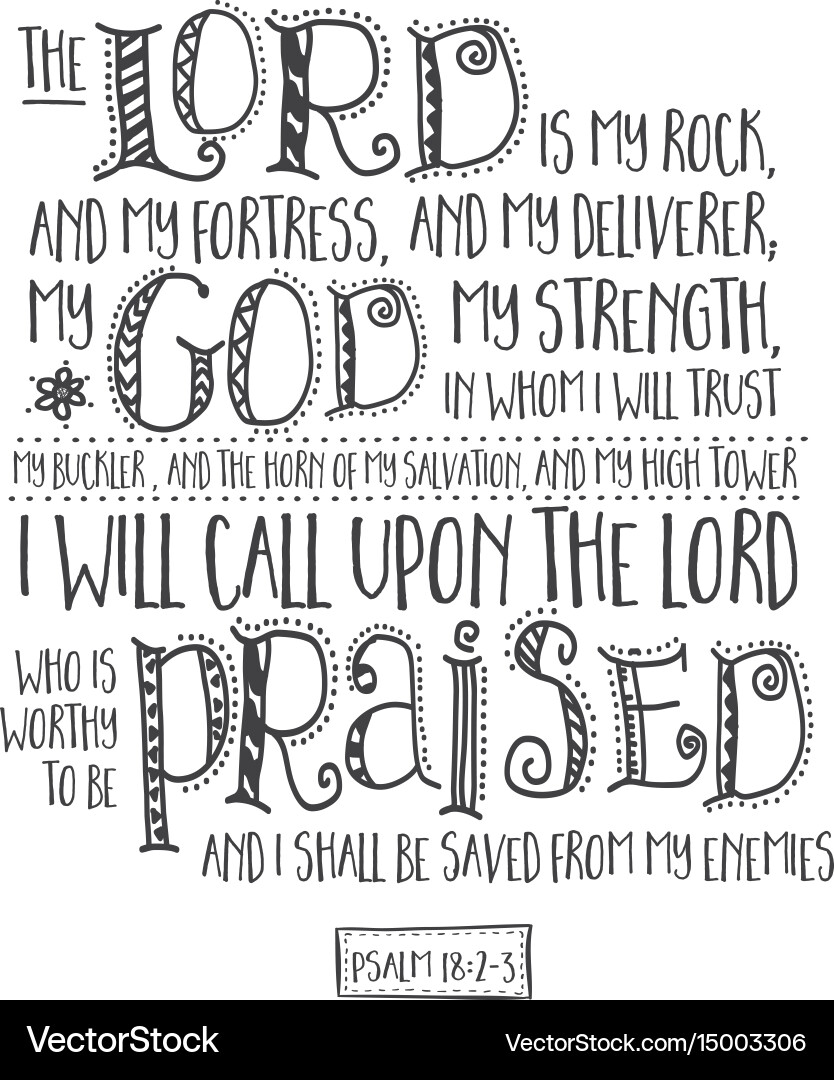 THE LORD IS MY ROCK,
AND MY FORTRESS, AND MY DELIVERER;
MY GOD MY STRENGTH,
IN WHOM I WILL TRUST
MY BUCKLER, AND THE HORN OF MY SALVATION, AND MY HIGH TOWER
I WILL CALL UPON THE LORD
WHO IS
WORTHY
TO BE
PRaiSED
AND I SHALL BE SAVED FROM MY ENEMIES
PSALM 18:2-3
VectorStock®
VectorStock.com/15003306